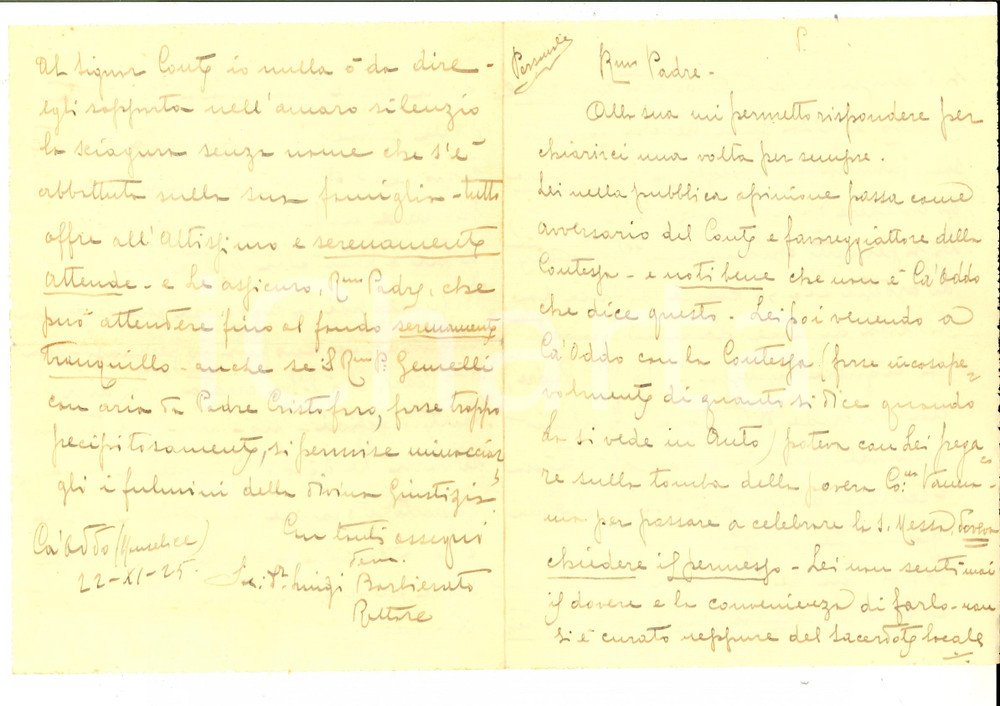 P.
Personale
R.mo Padre -
Alla sua mi permetto rispondere per
chiarirci una volta per sempre.
Lei nella pubblica opinione passa come
avversario del Conte e favoreggiattore della
Contessa - e noti bene che non è Ca' Oddo
che dice questo. Lei poi venendo a
Ca' Oddo con la Contessa (forse incosape=
volmente di quanto si dice quando
La si vede in Auto) poteva con Lei prega=
re sulla tomba della povera Co: 
ma per passare a celebrare la S. Messa, doveva
chiedere il permesso - Lei non sentì mai
il dovere e la convenienza di farlo - non
si è curato neppure del Sacerdote locale
Al Signor Conte io nulla ò da dire -
egli sopporta nell'amaro silenzio
la sciagura senza nome che s'è
abbattuta sulla sua famiglia - tutto
offre all'Altissimo e serenamente
attende - e Le assicuro, R.mo Padre, che
può attendere fino al fondo serenamente
tranquillo - anche se il R.mo P. Gemelli
con aria da Padre Cristoforo, forse troppo
precipitosamente, si permise minacciar
gli i fulmini della divina Giustizia
Con tanti ossequi
Ca' Oddo (Monselice)
22-XI-25.
dev.
Sac: D.r Luigi Barbierato
Rettore
iCharta